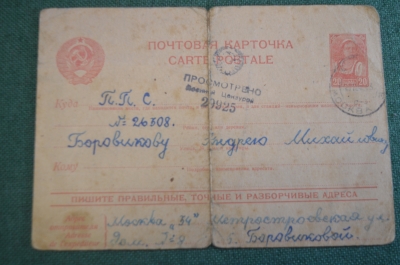 ПОЧТОВАЯ КАРТОЧКА
CARTE POSTALE
ПРОСМОТРЕНО
Военной Цензурой
20225
Куда П. П. С.
№ 26308.
Боровикову Андрею Михайловичу
Кому
ПИШИТЕ ПРАВИЛЬНЫЕ, ТОЧНЫЕ И РАЗБОРЧИВЫЕ АДРЕСА
Москва „34" Метростроевская ул.
Боровиковой.